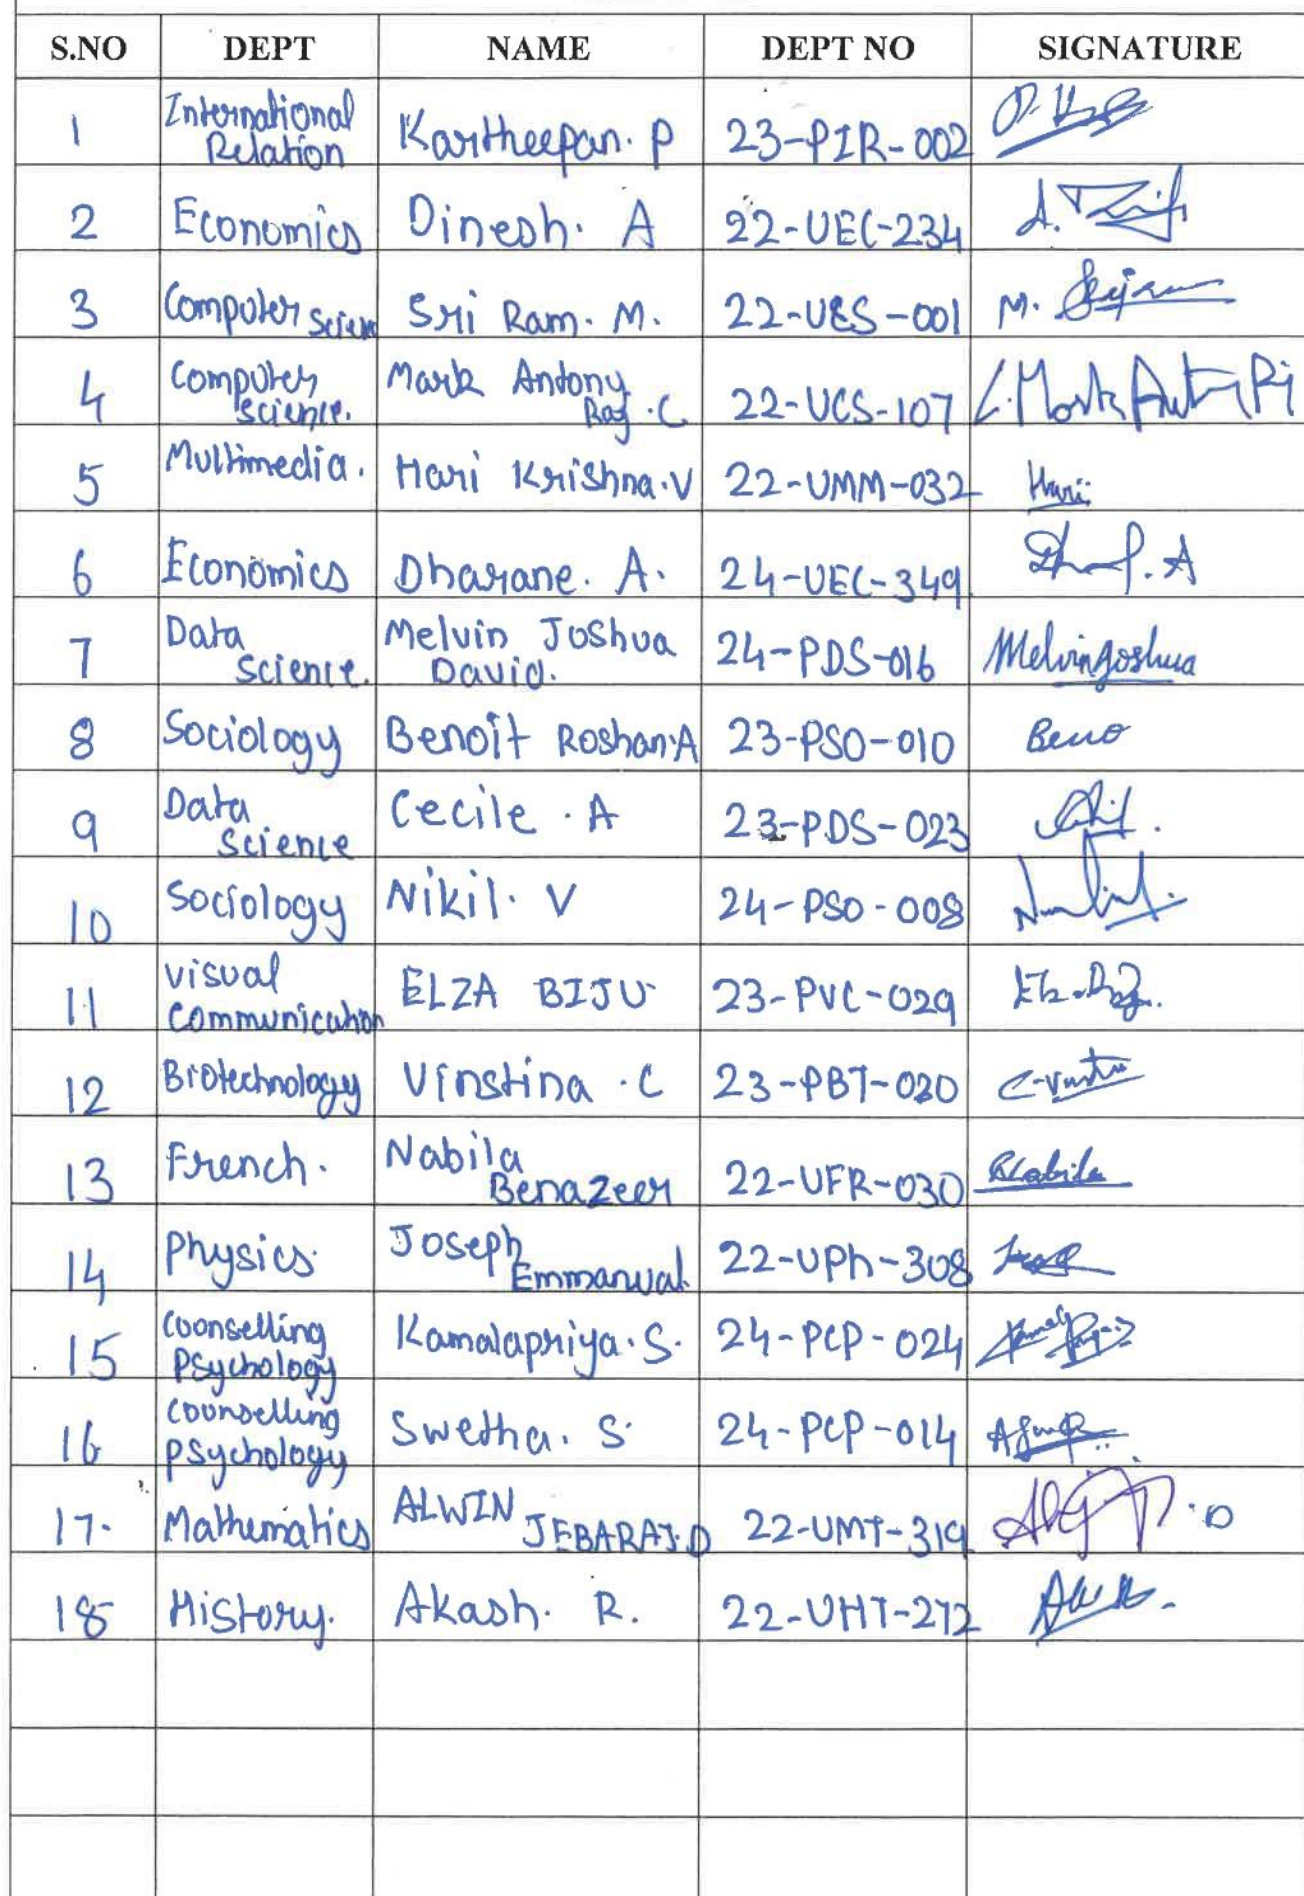 S.NO DEPT NAME DEPT NO SIGNATURE
1 International Relation Kartheepan. P 23-PIR-002
2 Economics Dinesh. A 22-UEC-234
3 Computer Scien Sri Ram. M. 22-UCS-001 M.
4 Computer Science. Mark Antony Raj .C 22-UCS-107 C. Mark Antony Raj
5 Multimedia. Hari Krishna.V 22-UMM-032 Hari
6 Economics Dharane. A. 24-UEC-349
7 Data Science. Melvin Joshua David. 24-PDS-016 Melvin Joshua
8 Sociology Benoit Roshan.A 23-PSO-010 Beno
9 Data Science Cecile . A 23-PDS-023
10 Sociology Nikil. V 24-PSO-008
11 Visual Communication ELZA BIJU 23-PVC-029
12 Biotechnology Vinstina .C 23-PBT-030
13 French. Nabila Benazeer 22-UFR-030 Nabila
14 Physics Joseph Emmanual. 22-UPh-308
15 Coonselling Psychology Kamalapriya.S. 24-PCP-024
16 Counselling Psychology Swetha. S 24-PCP-014
17. Mathematics ALWIN JEBARAJ.D 22-UMT-319
18 History. Akash. R. 22-UHT-272